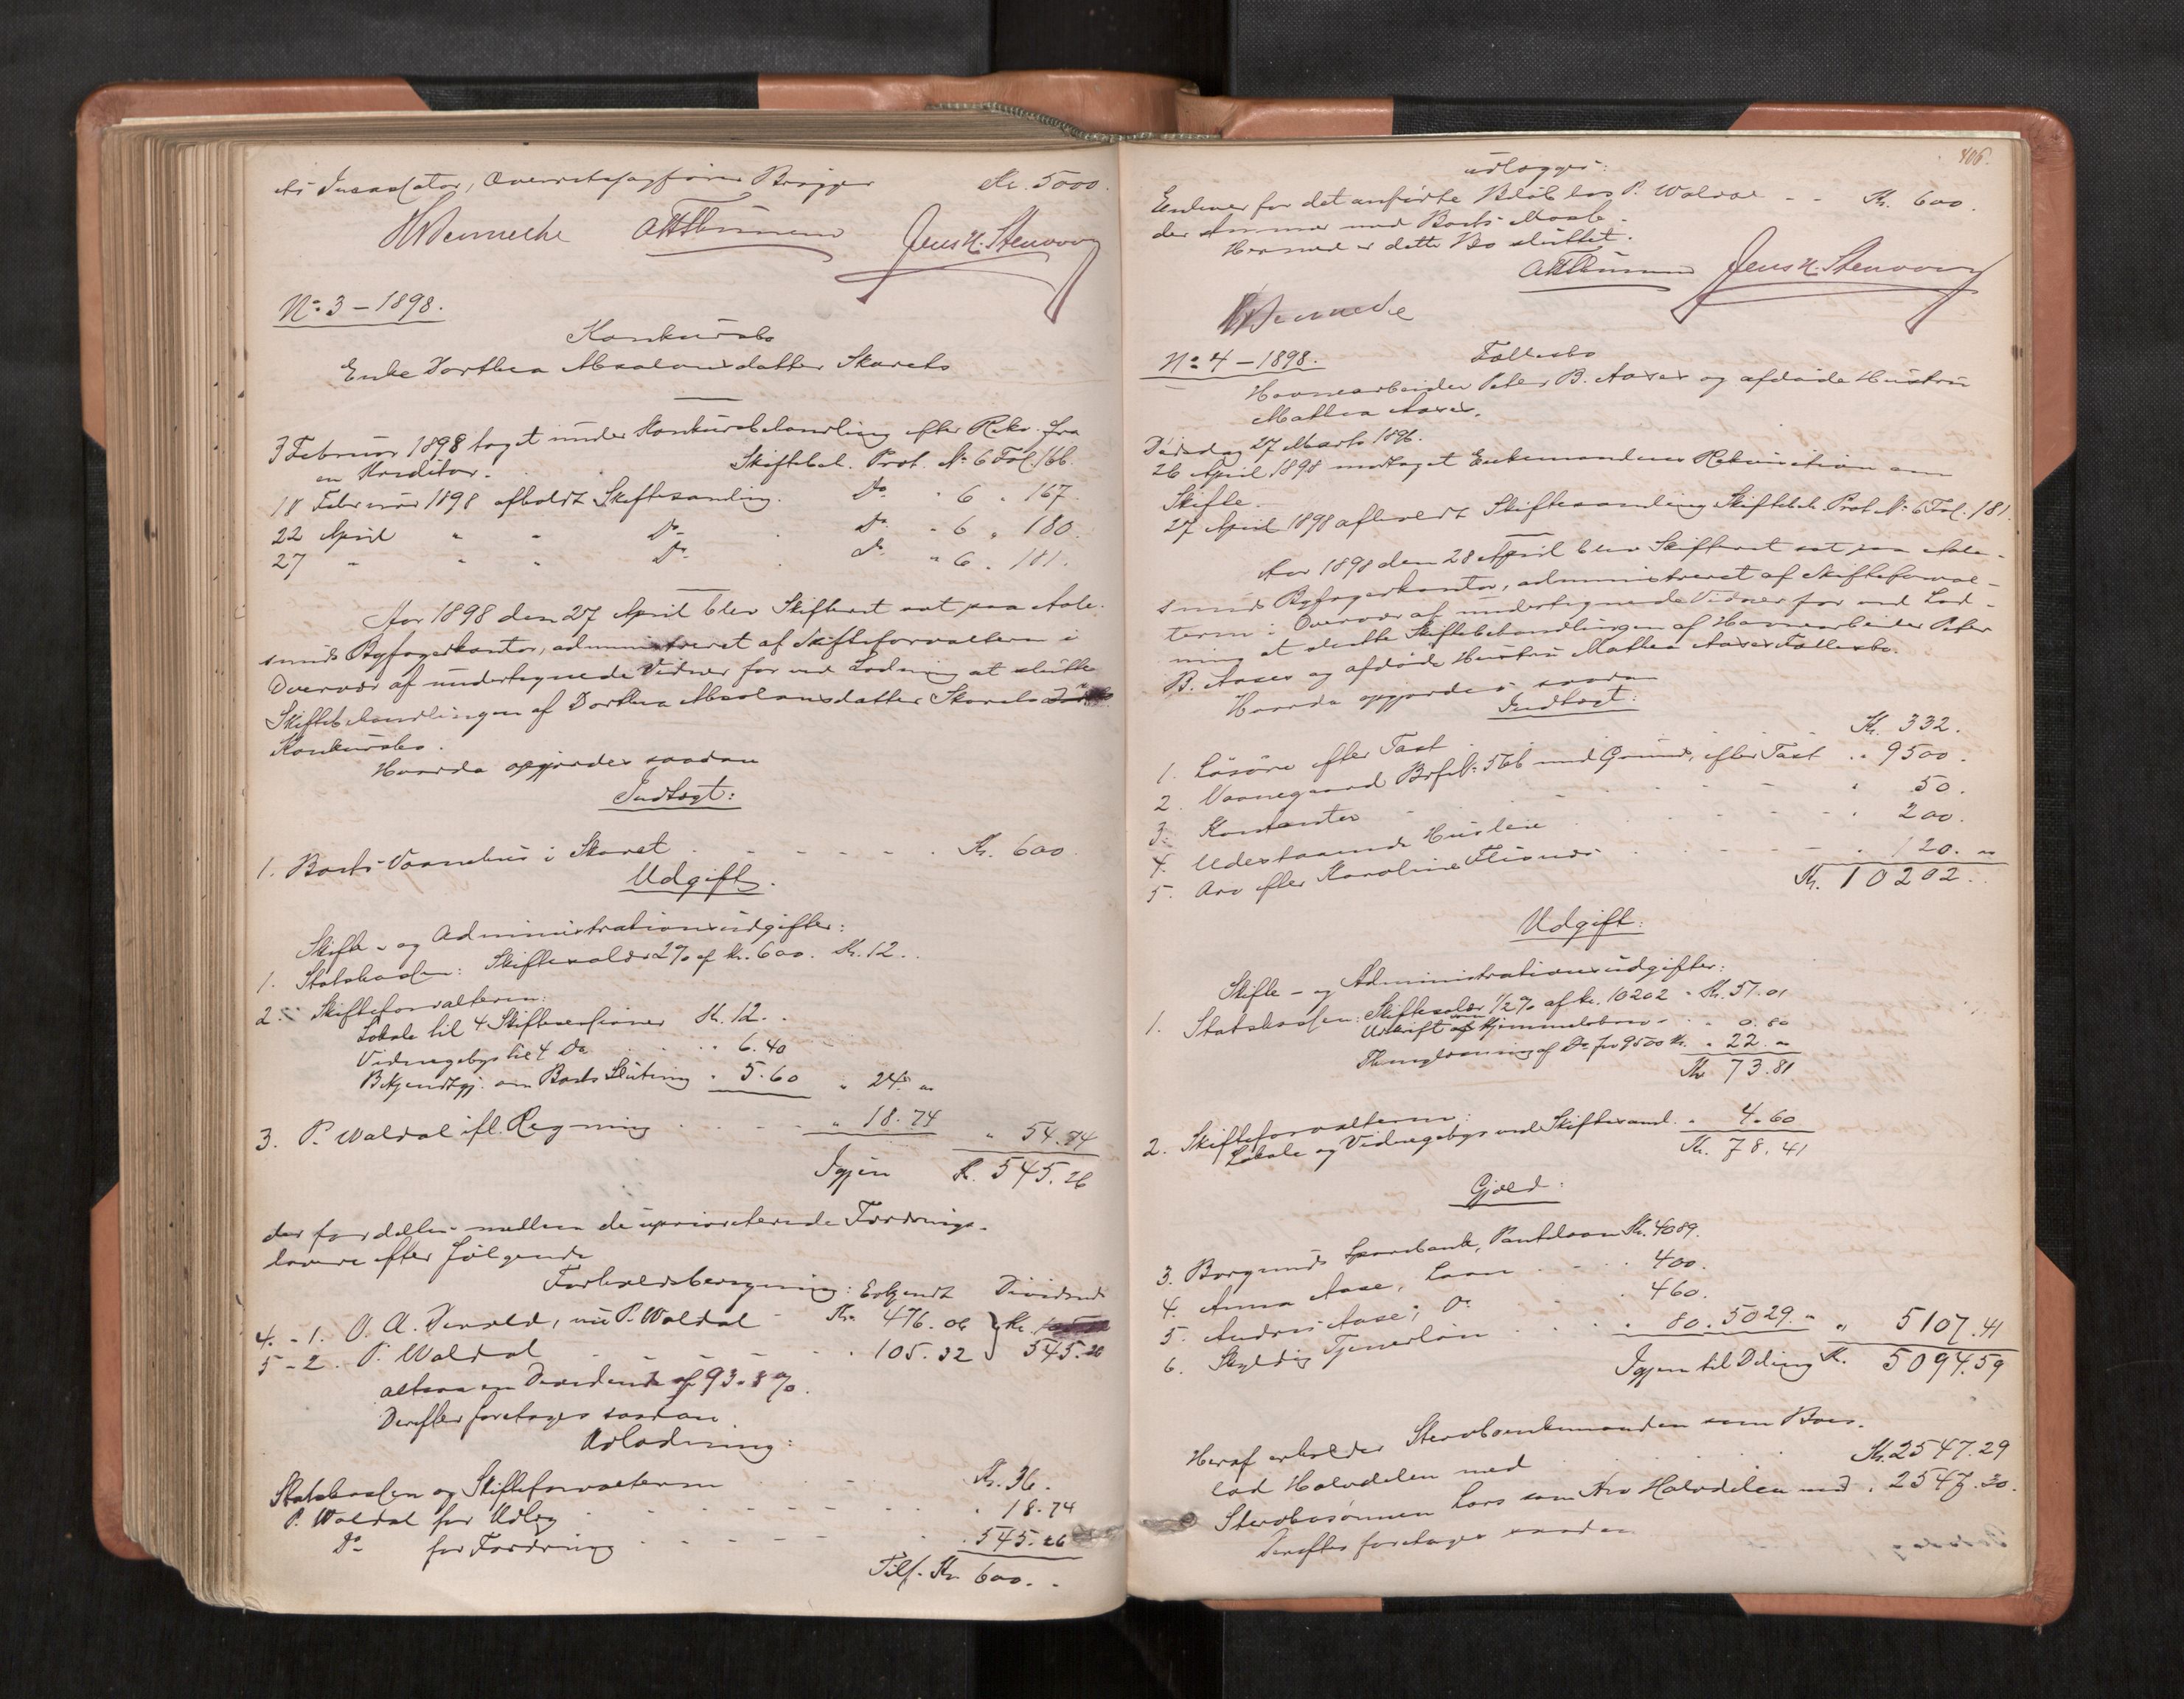 Overretssagfører Brygger Kr. 5000.
HWennecke AHThunem Jens N. Stenvaag
No 3 – 1898.
Konkursbo
Enke Dorthea Absalonsdatter Skarets
3 Februar 1898 taget under Konkursbehandling efter Rekv. fra
en Kreditor. Skiftebeh. Prot. No 6 Fol. 166.
18 Februar 1898 afholdt Skiftesamling. Do „ 6 „ 167.
22 April „ „ Do Do „ 6 „ 180.
27 „ „ „ Do Do „ 6 „ 181.
Aar 1898 den 27 April blev Skifteret sat paa Aale-
sunds Byfogedkontor, administreret af Skifteforvalteren i
Overvær af undertegnede Vidner for ved Lodning at slutte
Skiftebehandlingen af Dorthea Absalonsdatter Skarets
Konkursbo.
Hvorda opgjordes saadan
Indtægt:
1. Boets Vaanehus i Skaret Kr. 600.
Udgift.
Skifte- og Administrationsudgifter:
1. Statskassen: Skiftesalær 2% af Kr. 600. Kr. 12..
2. Skifteforvalteren:
Lokale til 4 Skiftesessioner Kr. 12. .
Vidnegebyr til 4 Do „ 6.40
Bekjendtgj. om Boets Slutning „ 5.60 „ 24. „
3. P. Waldal ifl. Regning „ 18.74 „ 54.74
Igjen Kr. 545.26
der fordeles mellem de uprioriterede Fordrings-
havere efter følgende
Forholdsberegning: Erkjendt Dividende
4. - 1. O. A. Devold, nu P. Waldal Kr. 476.06 } Kr.
5 - 2. P. Waldal „ 105.32 } 545.26
altsaa en Dividende af 93.8 %.
Derefter foretages saadan
Udlodning:
Statskassen og Skifteforvalteren Kr. 36.
P. Waldal for Udlæg „ 18.74
Do for Fordring „ 545.26
Tils. Kr. 600. -
406.
udlægges:
Enhver for det anførte Beløb hos P. Waldal - - Kr. 600.
der Summer med Boets Masse.
Hermed er dette Bo sluttet.
AHThunem Jens N. Stenvaag
HWennecke
No 4 – 1898. Fællesbo
Havnearbeider Peter B. Aases og afdøde Hustru
Mathea Aases.
Dødsdag 27 Marts 1896.
26 April 1898 modtaget Enkemandens Rekvisition om
Skifte.
27 April 1898 afholdt Skiftesamling Skiftebeh. Prot. No 6 Fol. 181.
Aar 1898 den 28 April blev Skifteret sat paa Aale-
sunds Byfogedkontor, administreret af Skifteforval-
teren i Overvær af undertegnede Vidner for ved Lod-
ning at slutte Skiftebehandlingen af Havnearbeider Peter
B. Aases og afdøde Hustru Mathea Aases Fællesbo.
Hvorda opgjordes saadan
Indtægt:
1. Løsøre efter Taxt Kr. 332.
2. Vaanegaard Brfo No 566 med Grund, efter Taxt „ 9500.
3. Kontanter „ 50.
4. Udestaaende Husleie „ 200.
5. Arv efter Karoline „ 120. „
Kr. 10202..
Udgift:
Skifte- og Administrationsudgifter:
1. Statskassen: Skiftesalær 1/2 % af Kr. 10202 Kr. 51.01
Udskrift som Hjemmelsbrev „ 0.80
Thinglæsning af Do for 9500 Kr. „ 22. „
Kr 73.81.
2. Skifteforvalteren:
Lokale og Vidnegebyr ved Skiftesaml. „ 4.60
Kr. 78.41
Gjæld:
3. Borgunds Sparebank, Pantelaan Kr. 4089.
4. Anna Aase, Laan „ 400.
5. Andrus Aase, Do „ 460.
6. Skyldig Tjenerløn „ 80. 5029. „ „ 5107.41
Igjen til Deling Kr. 5094.59
Heraf erholder Stervboenkemanden som Boes-
lod Halvdelen med Kr. 2547.29
Stervbosønnen Lars som Arv Halvdelen med „ 2547.30.
Derefter foretages saadan